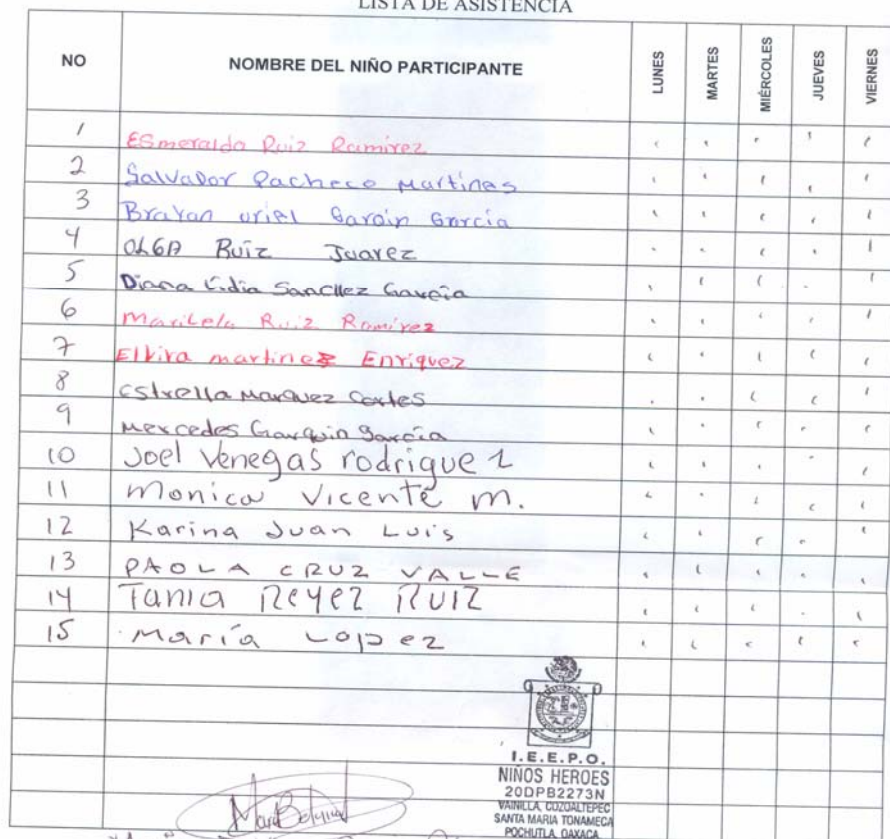 LISTA DE ASISTENCIA
NO NOMBRE DEL NIÑO PARTICIPANTE LUNES MARTES MIÉRCOLES JUEVES VIERNES
1 Esmeralda Ruiz Ramirez
2 Salvador Pacheco Martines
3 Brayan uriel Garcia
4 OLGA Ruiz Juarez
5 Diana Lidia Sanchez Garcia
6 Maricela Ruiz Ramirez
7 Elvira martinez Enriquez
8 Estrella Marquez Cortes
9 Mercedes Garcia
10 Joel Venegas rodriguez
11 Monica Vicente m.
12 Karina Juan Luis
13 PAOLA CRUZ VALLE
14 Tania Reyez Ruiz
15 María Lopez
I.E.E.P.O.
NIÑOS HEROES
20DPB2273N
VAINILLA, COZOALTEPEC
SANTA MARIA TONAMECA
POCHUTLA, OAXACA